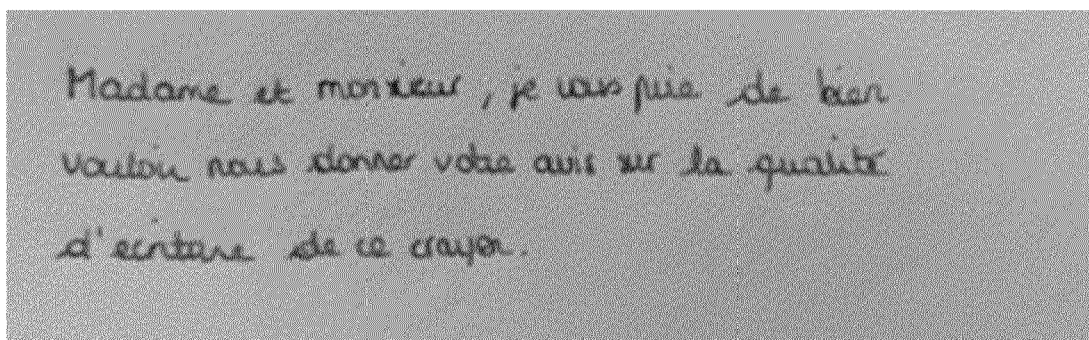 Madame et monsieur, je vous prie de bien
vouloir nous donner votre avis sur la qualité
d'ecriture de ce crayon.